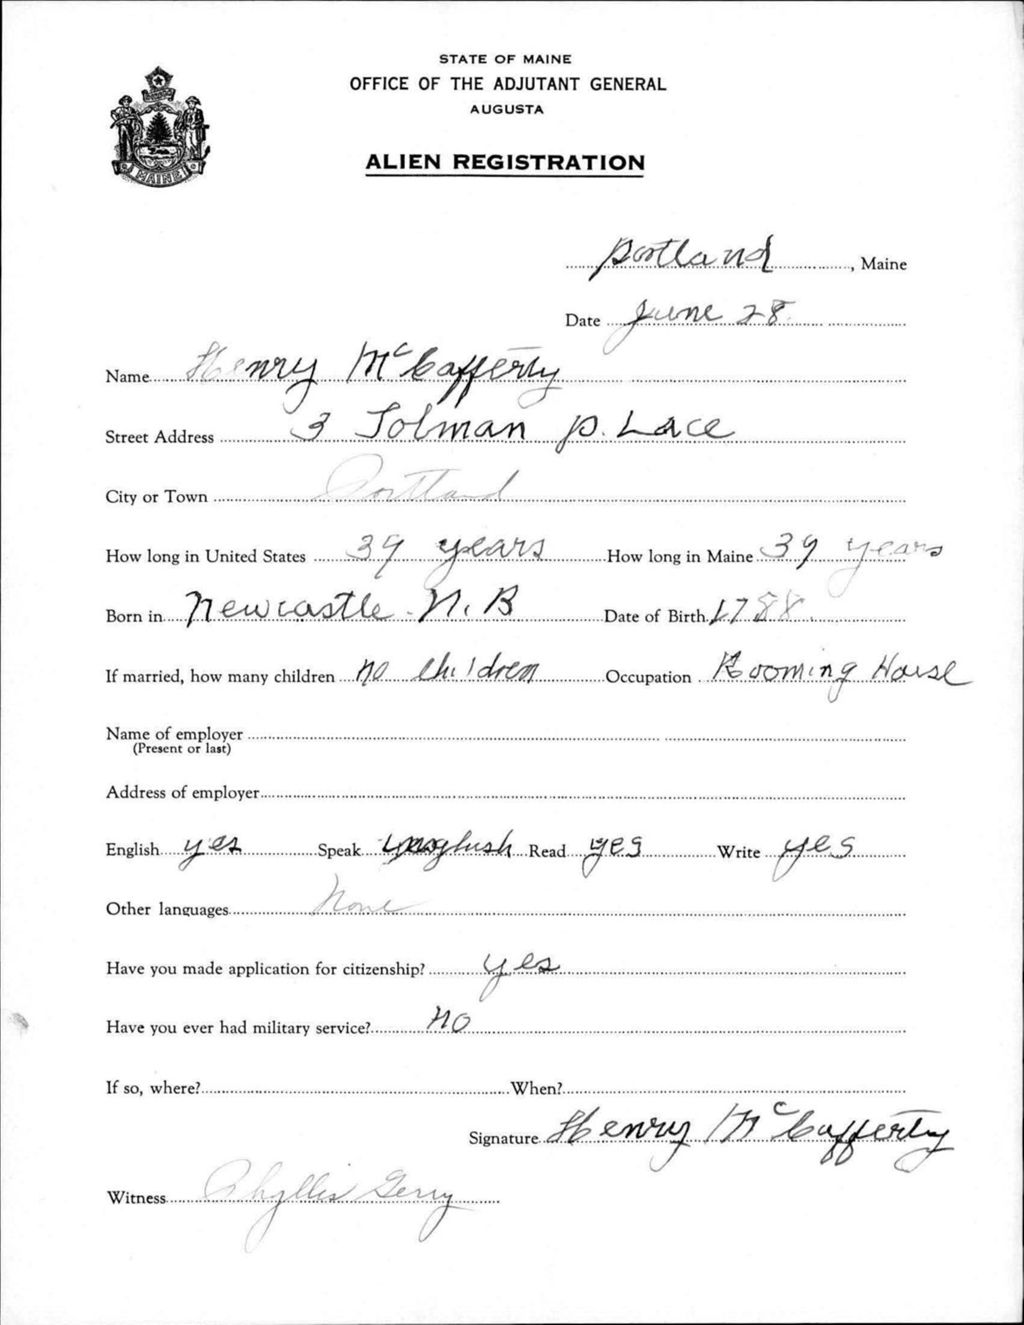 STATE OF MAINE
OFFICE OF THE ADJUTANT GENERAL
AUGUSTA
ALIEN REGISTRATION
MAINE
Portland, Maine
Date June 28
Name Henry McCafferty
Street Address 3 Tolman pLace
City or Town Portland
How long in United States 39 years How long in Maine 39 years
Born in Newcastle N. B Date of Birth 1788
If married, how many children no children Occupation Rooming House
Name of employer
(Present or last)
Address of employer
English yes Speak Read yes Write yes
Other languages None
Have you made application for citizenship? yes
Have you ever had military service? no
If so, where? When?
Signature Henry McCafferty
Witness Phyllis Gerry